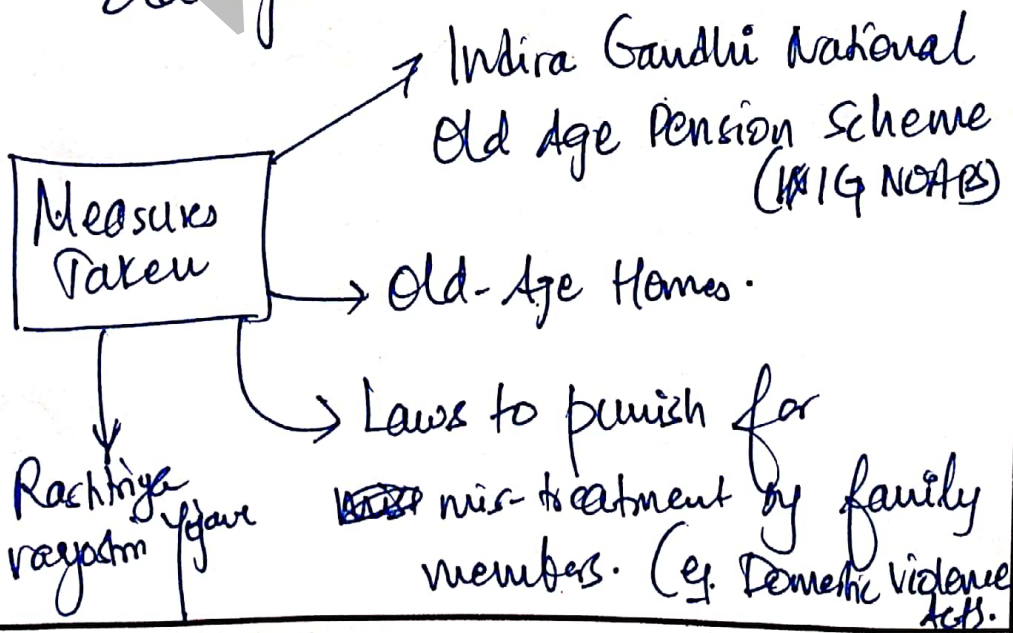 Measures
Taken
Indira Gandhi National
Old Age Pension Scheme
(IGNOAPS)
Old-Age Homes.
Laws to punish for
mis-treatment by family
members. (eg. Domestic Violence
Acts.
Rashtriya